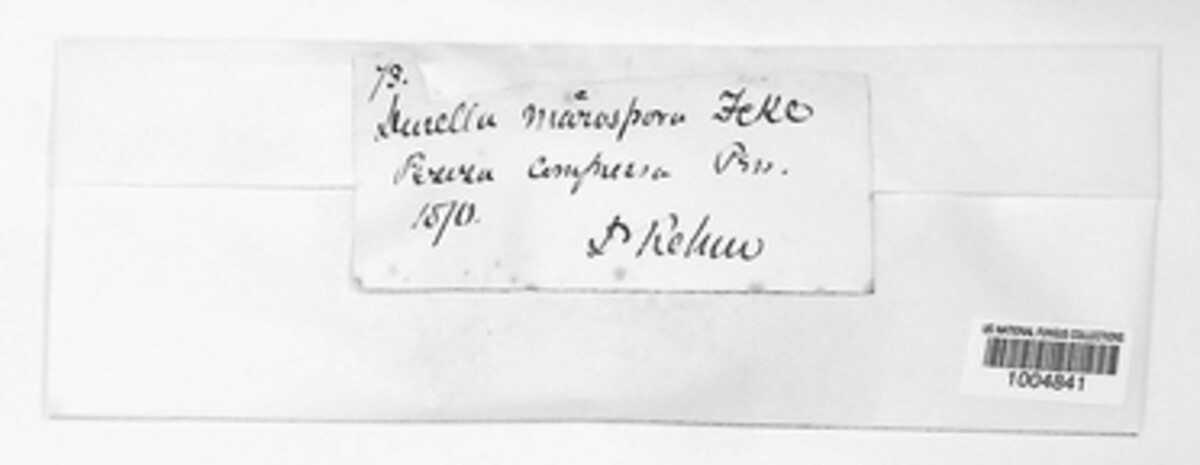 73.
Durella macrospora Fckl
Peziza compressa Prs.
1870.
Dr Rehm
US NATIONAL FUNGUS COLLECTIONS
1004841